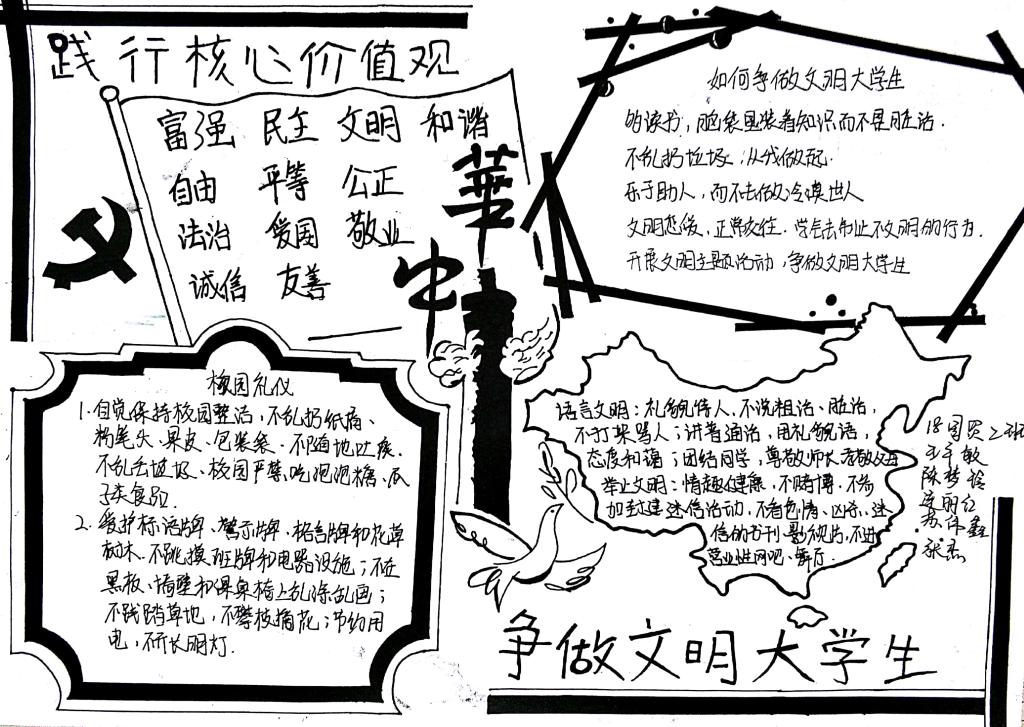 践行核心价值观
富强 民主 文明 和谐
自由 平等 公正
法治 爱国 敬业
诚信 友善
中
華
如何争做文明大学生
的读书，脑袋里装着知识而不是脏话.
不乱扔垃圾，从我做起.
乐于助人，而不去做冷漠世人
文明恋爱，正常交往.学会去制止不文明的行为.
开展文明主题活动，争做文明大学生
校园礼仪
1.自觉保持校园整洁，不乱扔纸屑、
粉笔头、果皮、包装袋.不随地吐痰、
不乱丢垃圾、校园严禁吃泡泡糖、瓜
子类食品.
2.爱护标语牌、警示牌、格言牌和花草
树木.不跳摸班牌和电器设施；不在
黑板、墙壁和课桌椅上乱涂乱画；
不践踏草地，不攀枝摘花；节约用
电，不开长明灯.
语言文明：礼貌待人，不说粗话、脏话，
不打架骂人；讲普通话，用礼貌语，
态度和谐；团结同学，尊敬师长孝敬父母
举止文明：情趣健康，不赌博，不参
加封建迷信活动，不看色情、凶杀、迷
信的书刊、影视片，不进
营业性网吧、舞厅.
18国贸2班
陈梦
张杰
争做文明大学生